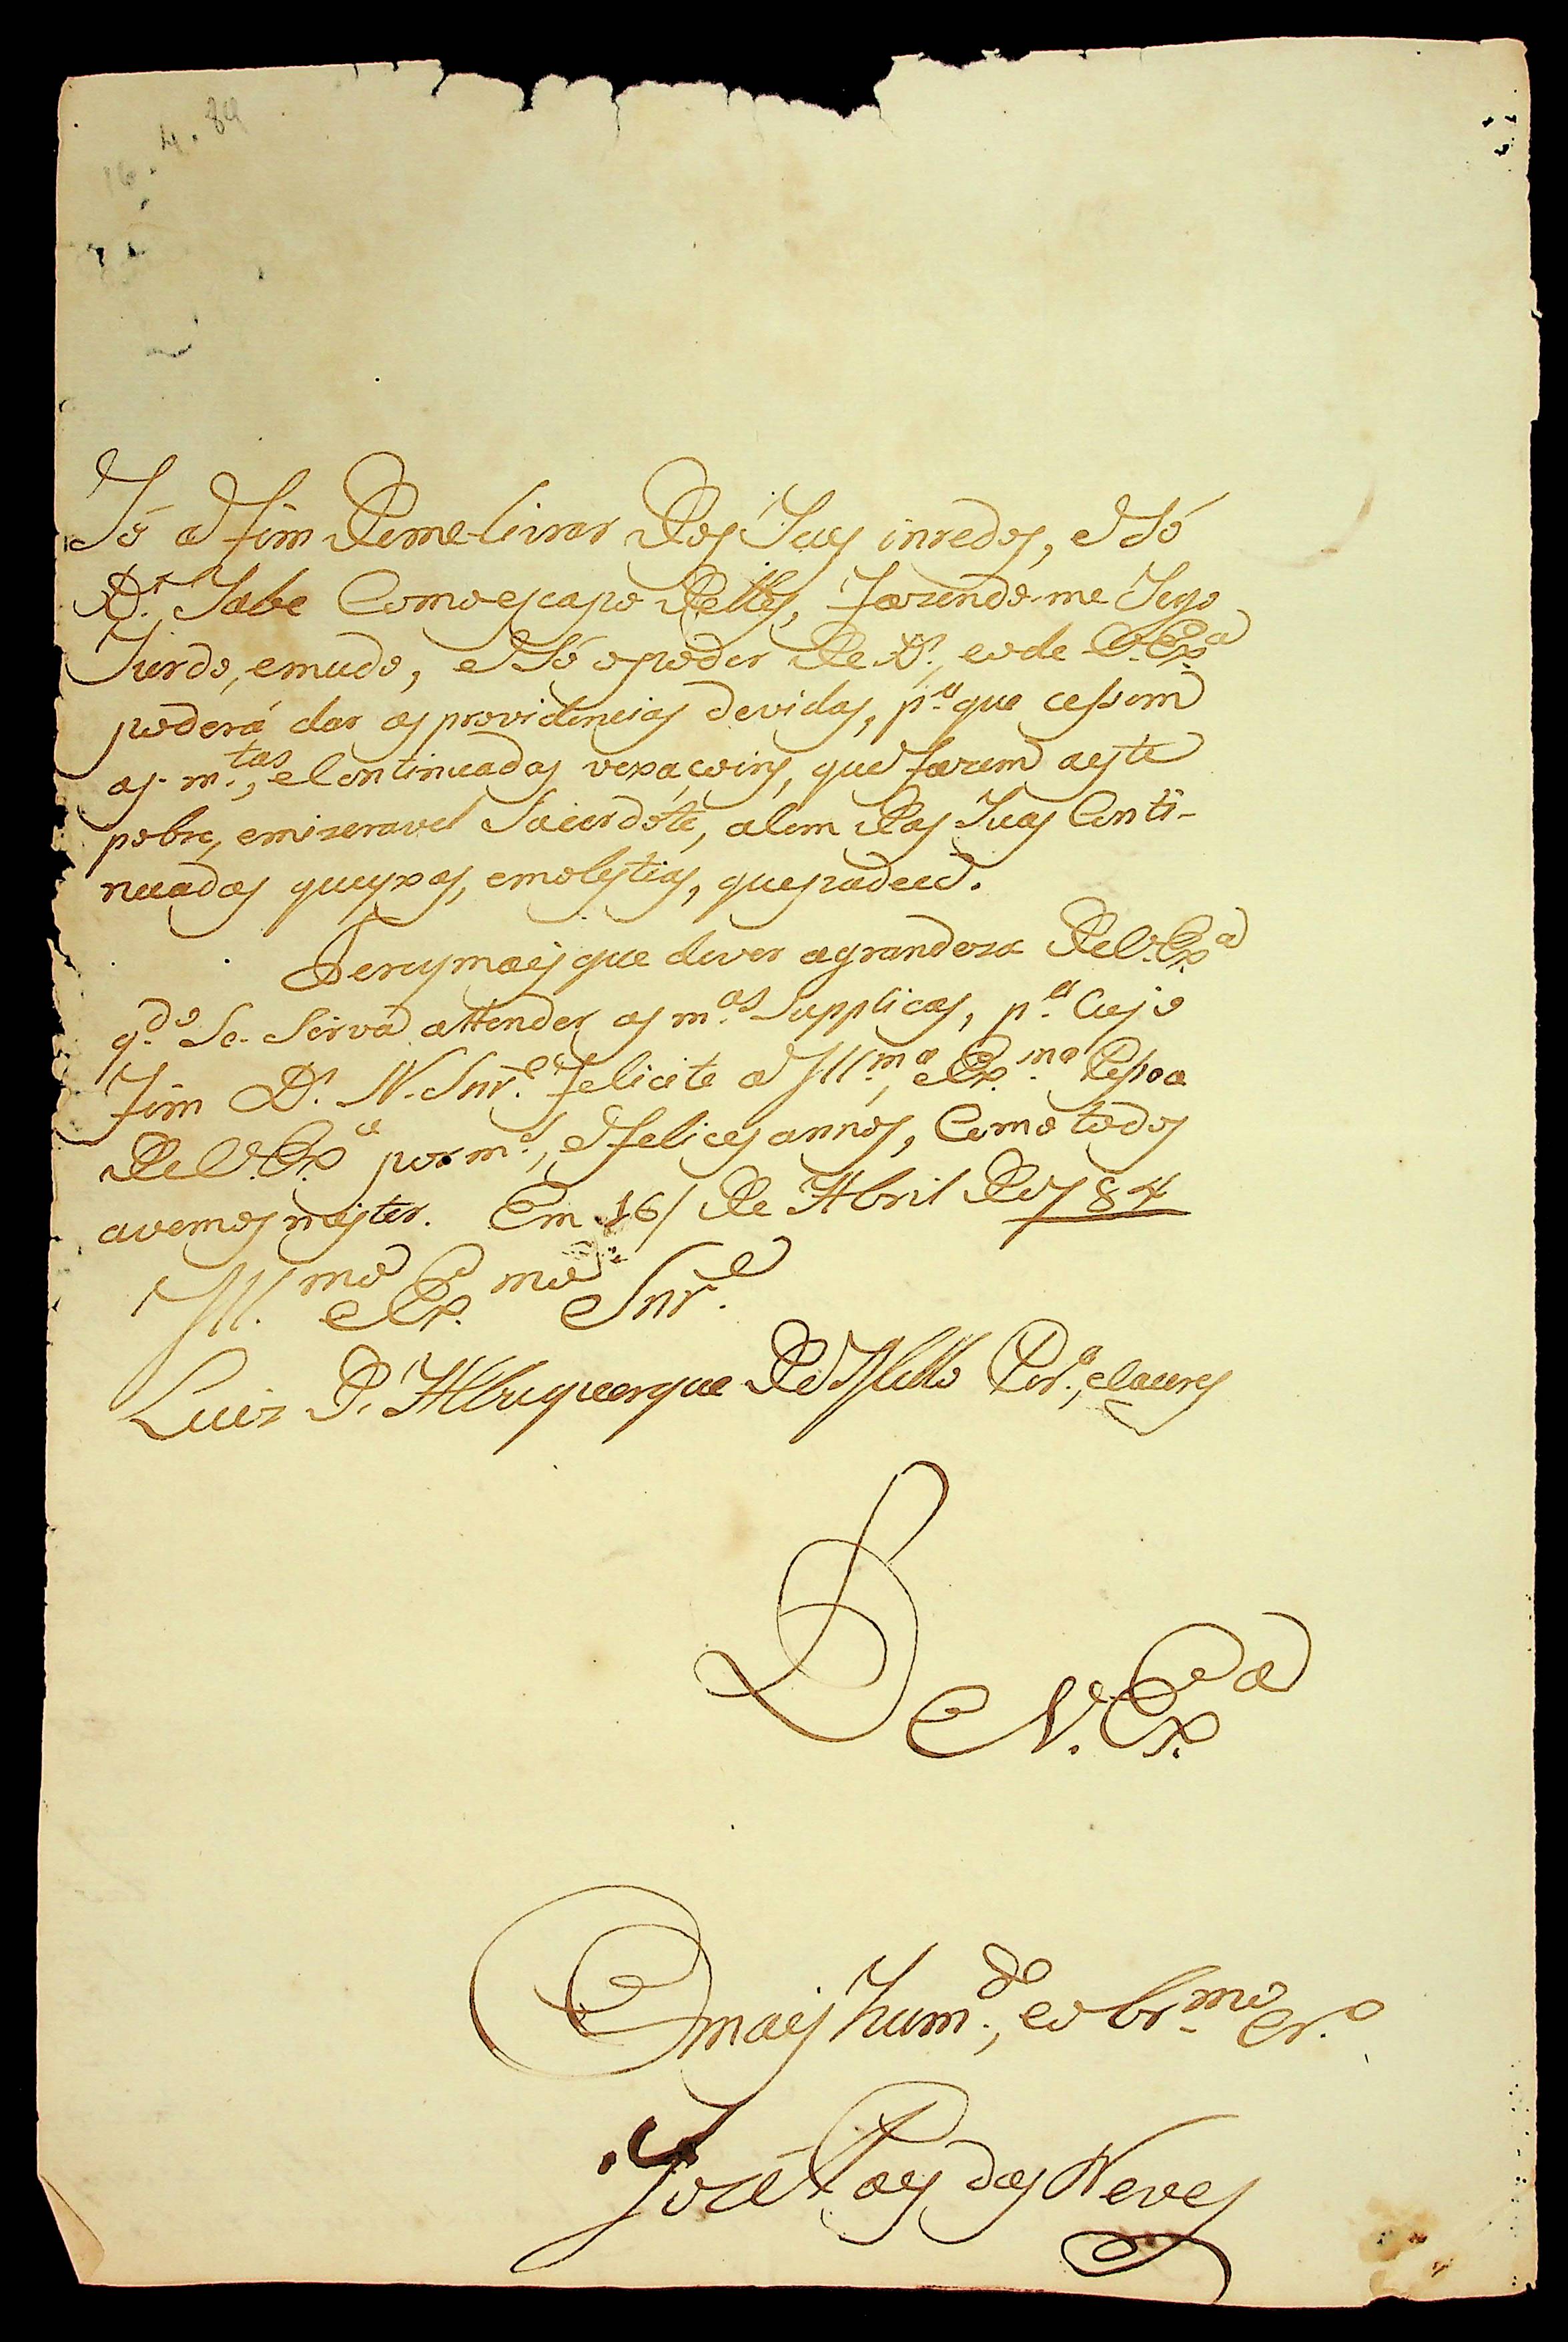 16.4.84
Só a fim de me livrar dos Seus inredos, e Só
D.s Sabe Como escapo delles, fazendo-me Sego
Surdo, e mudo, e Só o poder de D.s, eo de V. Ex.a
poderá dar as providencias devidas, p.a que cessem
as m.tas, e Continuadas vexaçoins, que fazem a este
pobre, e mizeravel Sacerdóte, alem das Suas Conti-
nuadas queyxas, e molestias, que padece.
Terey mais que dever a grandeza de V. Ex.a
q.do Se Sirva attender as m.as Supplicas, p.a Cujo
fim D.s N. Snr.e felicite a Ill.ma, e Ex.ma Pessoa
de V. Ex.a por m.s, e felices annos, Como todos
avemos mister. Em 16/ de Abril de 784
Ill.mo e Ex.mo Snr.e
Luiz d'Albuquerque de Mello Per.a, e Caceres
De V. Ex.a
O mais hum.de, e obr.mo Cr.o
José Pais das Neves